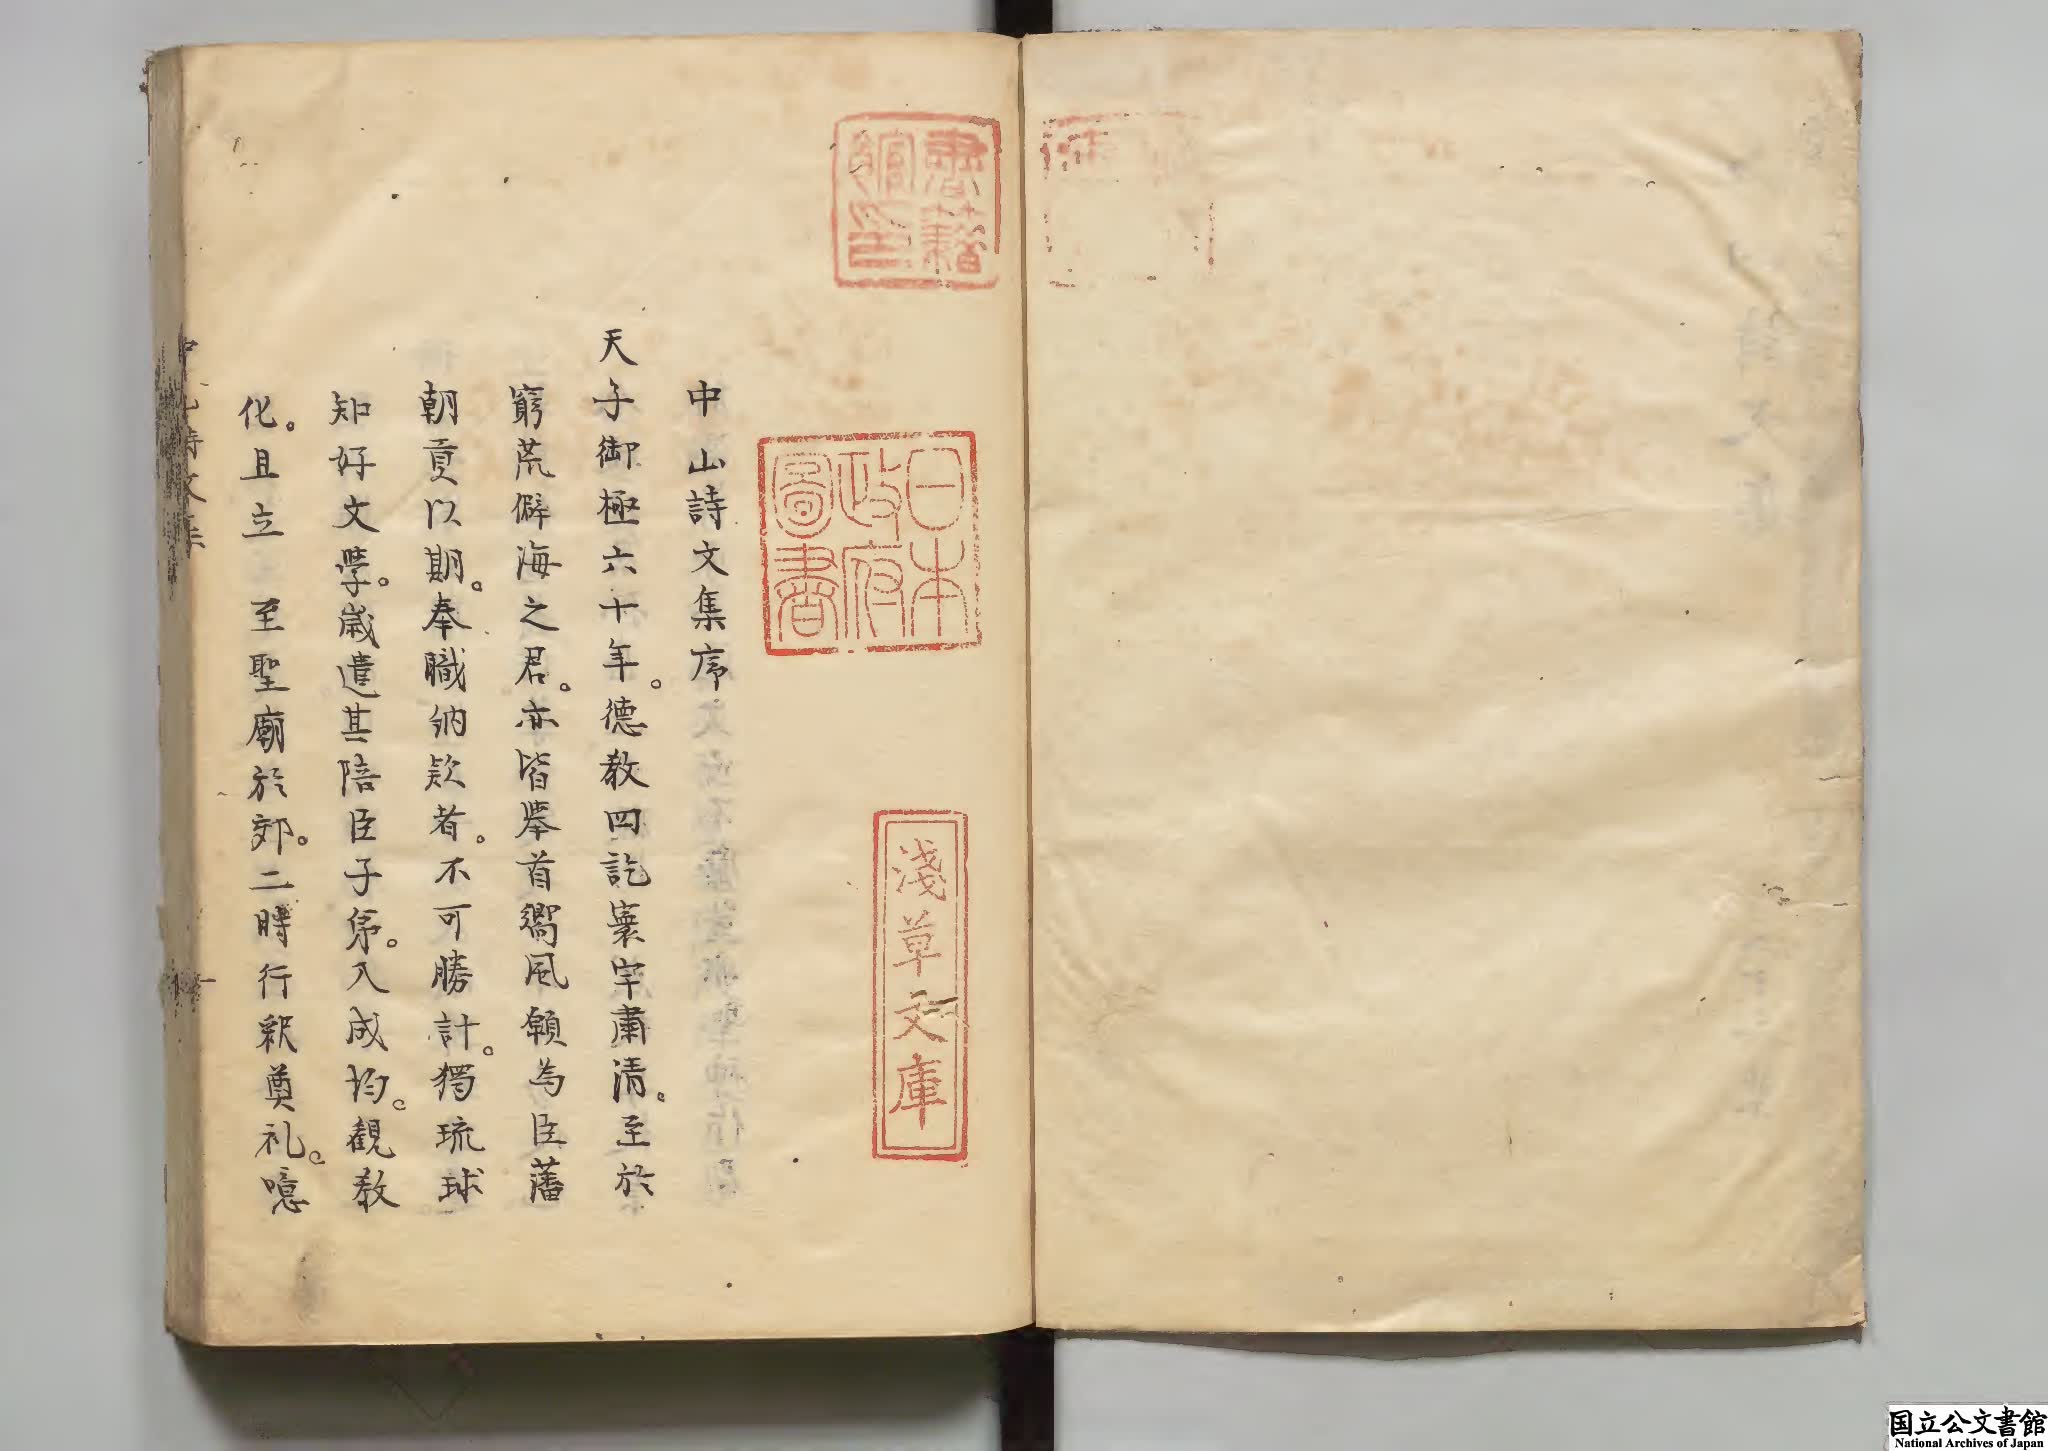 書籍
館印
日本
政府
圖書
淺草文庫
中山詩文集序
天子御極六十年。德教四訖寰宇肅清。至於
窮荒僻海之君。亦皆舉首嚮風願為臣藩
朝貢以期。奉職納欵者。不可勝計。獨琉球
知好文學。歲遣其陪臣子弟。入成均。觀教
化。且立 至聖廟於郊。二時行釈奠礼。噫
中山詩文集
一
国立公文書館
National Archives of Japan